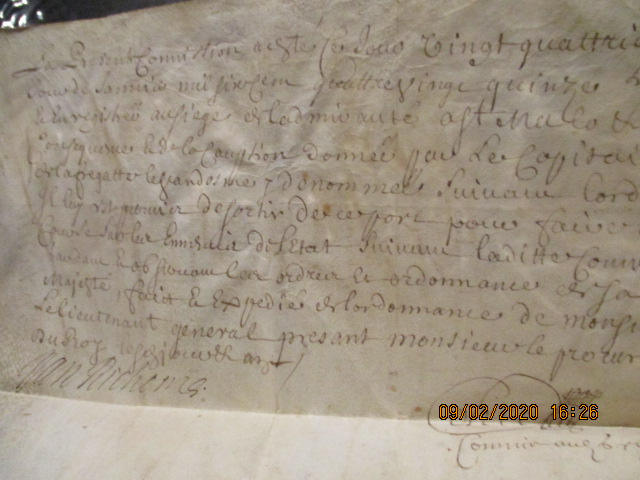 La presente Commission a esté ce Jour vingt quattrie
Jour de Janvier mil six cent quattre vingt quinze
Enregistrée au siege de ladmirauté a St Malo &
Consequence de la Caution donnée par Le Capitai
de la fregatte le grand y dénommé Suivant lord
Il luy est permis de sortir De ce port pour faire
Course sur les Ennemis de lEtat Suivant laditte Comm
Gardant & observant les ordres & ordonnance de sa
Majesté, fait & Expedié de lordonnance de monsi
Le lieutenant general presant monsieur le procur
du Roy les jour & an
09/02/2020 16:26
Commis au